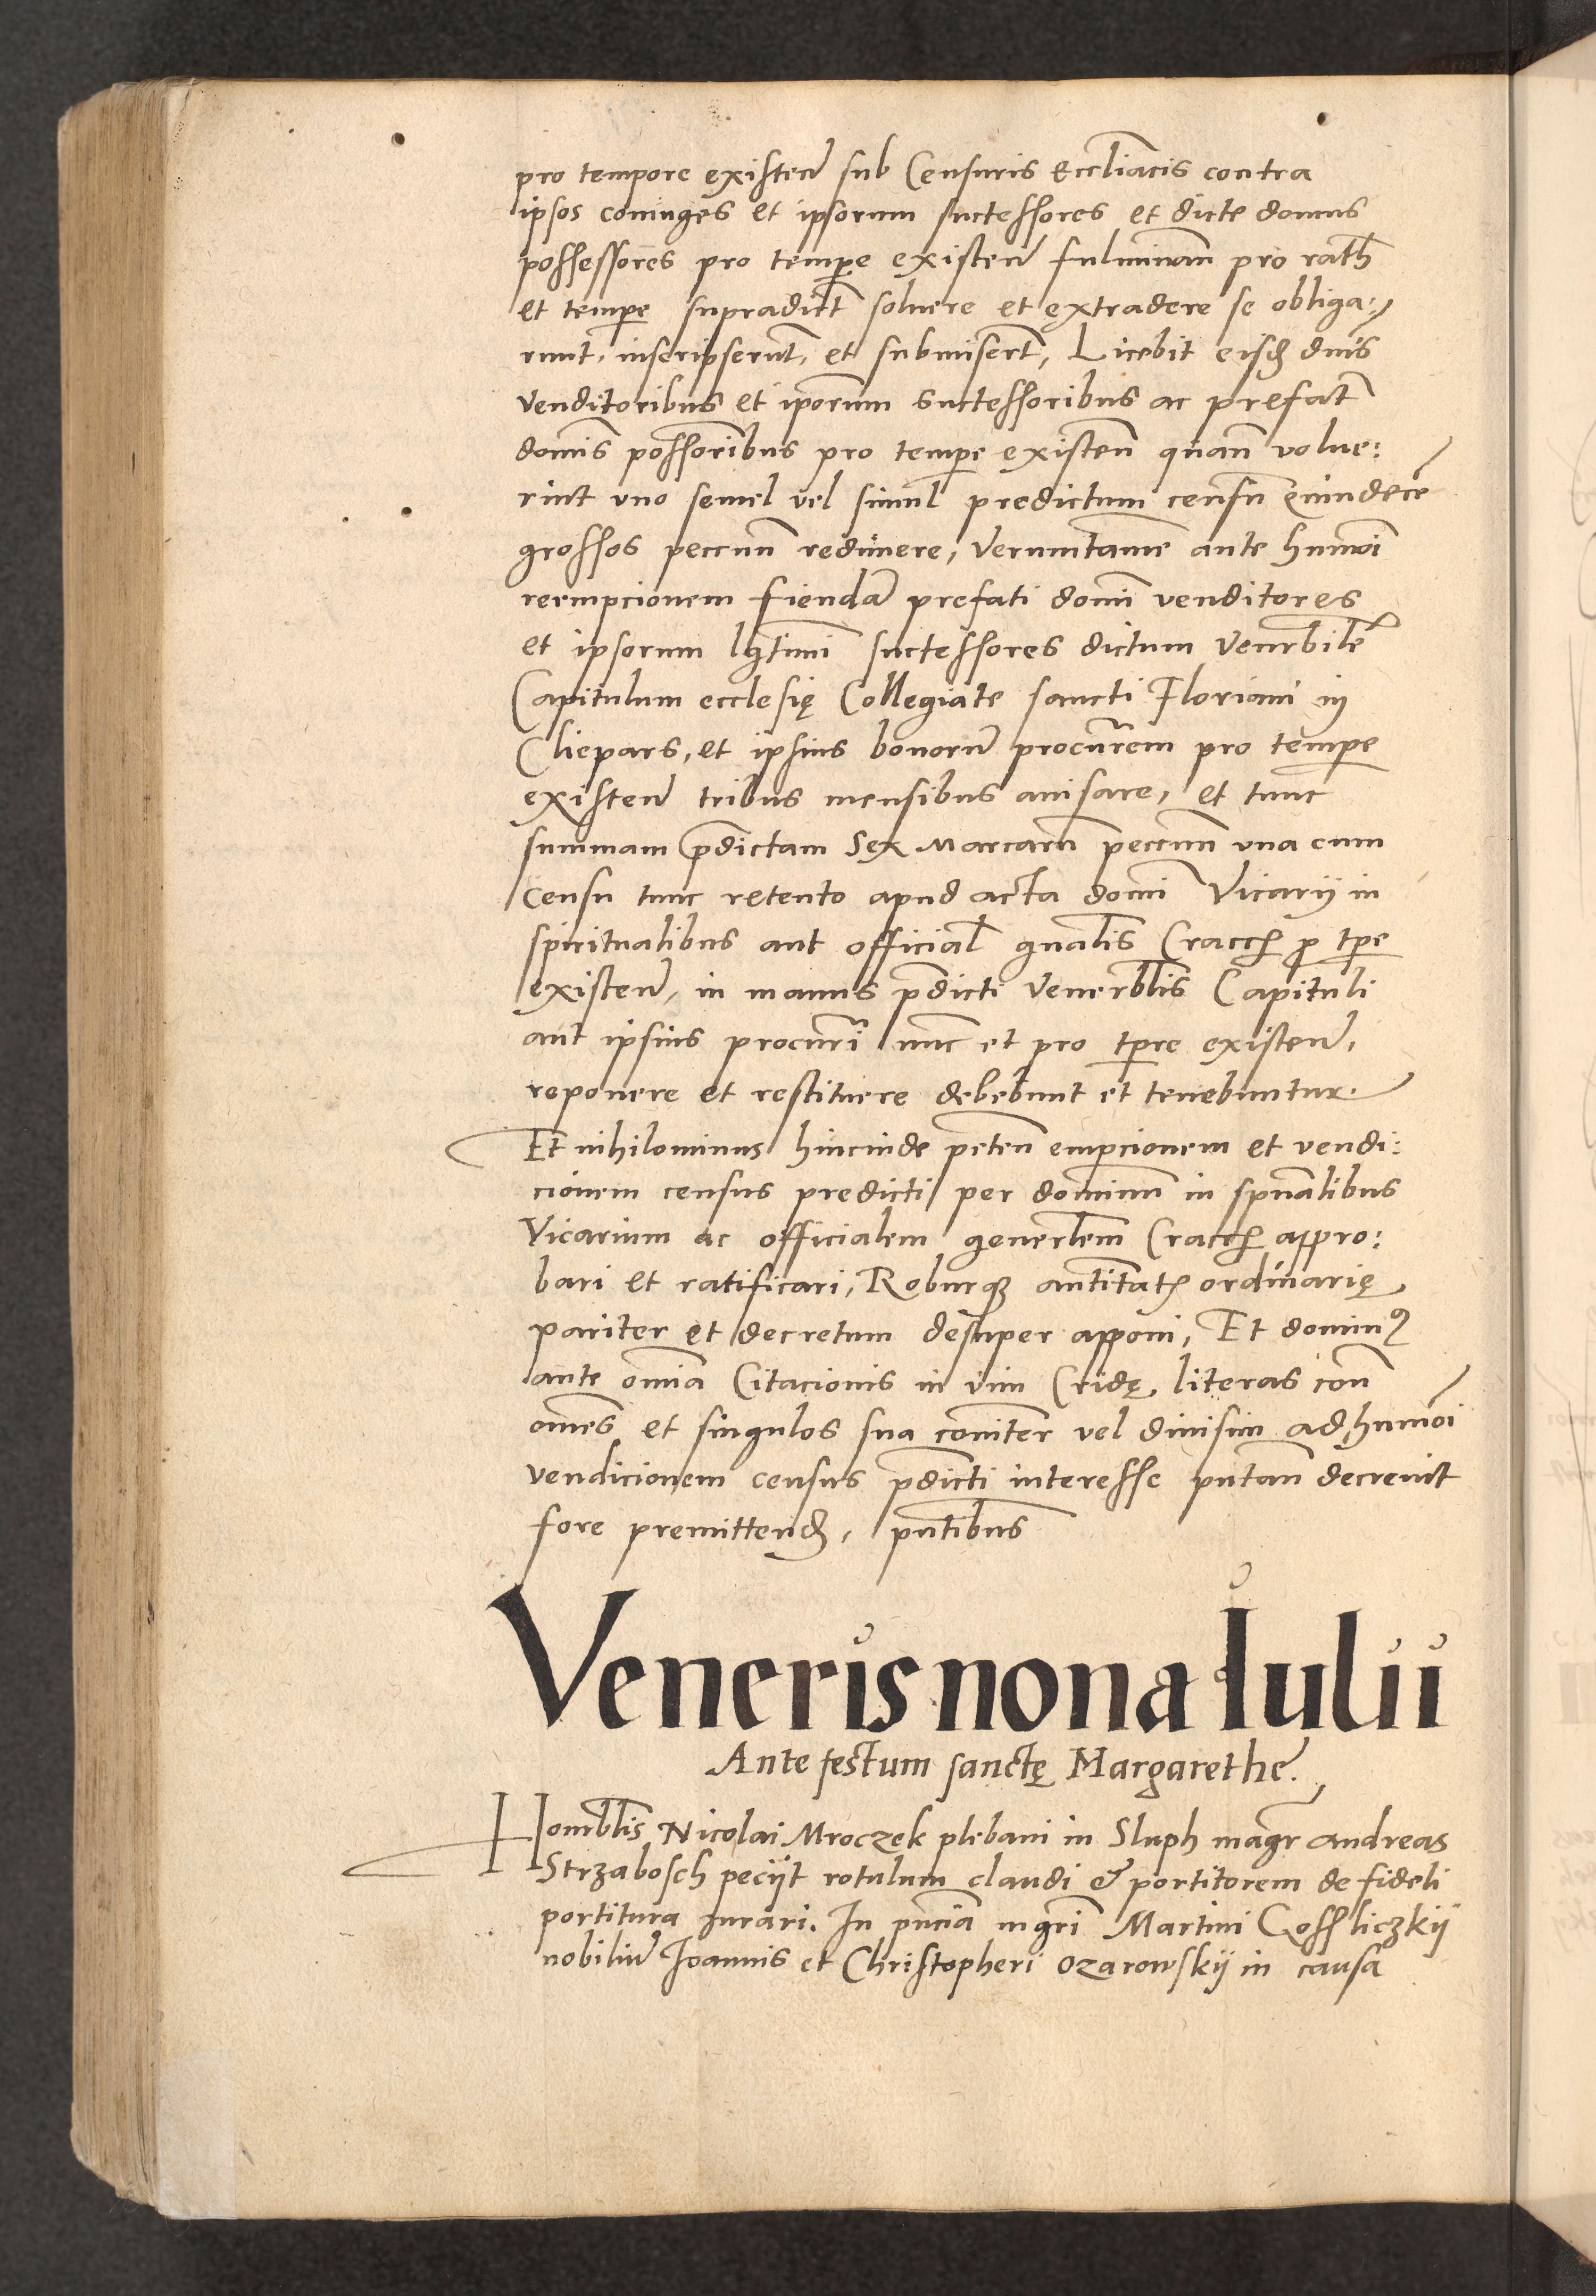 pro tempore existen̄ sub Censuris Eccl̄iacis contra
ipsos coniuges et ipsorum successores et dicte domus
possessores pro temp̄e existen̄ fulminan̄ pro rath
et temp̄e supradict̄ soluere et extradere se obliga:
runt, inscripserūt, et submisert̄, Licebit eisđ dn̄is
venditoribus et ip̄orum successoribus ac prefat̄
domus poss̄oribus pro temp̄e existen̄ quan̄ volue:
rint vno semel vel simul predictum censū quindecē
grossos peccun̄ redimere, Verumtamē ante hmōi
reempcionem fiendā prefati domi venditores
et ipsorum lgt̄imi successores dictum Venerbilē
Capitulum ecclesię Collegiate sancti Floriani in
Clepars, et ipsius bonorū procur̄em pro temp̄e
existen̄ tribus mensibus auisare, et tunc
summam p̄dictam Sex Marcarū peccun̄ vna cum
censu tunc retento apud acta domi Vicarij in
spiritualibus aut official̄ gnalis Cracoꝫ ꝓ tp̄e
existen̄, in manus p̄dicti Venerblis Capituli
aut ipsius procur̄i nūc et pro tp̄re existen̄,
reponere et restituere debebunt et tenebuntur.
Et nihilominus hincinde peten̄ empcionem et vendi:
cionem census predicti per dominum in spūalibus
Vicarium ac officialem generlem̄ Cracoꝫ appro:
bari et ratificari, Roburqꝫ auctitatꝭ ordinarię
pariter et decretum desuper apponi, Et dominꝰ
ante omīa Citacionis in vim Cridę, literas con̄
omēs et singulos sua com̄iter vel diuisim ad hmōi
vendicionem census p̄dicti interesse putan̄ decreuit
fore premittenđ, pn̄tibus
Veneris nona Iulii
Ante festum sanctę Margarethe.
Honorblis Nicolai Mroczek plebani in Sluph magr̄ Andreas
Strzabosch pecijt rotulum claudi & portitorem de fideli
portitura iurari. In pn̄cia mgr̄i Martini Gossliczkij
nobiliū Joannis et Christopheri Ozarowskij in causa